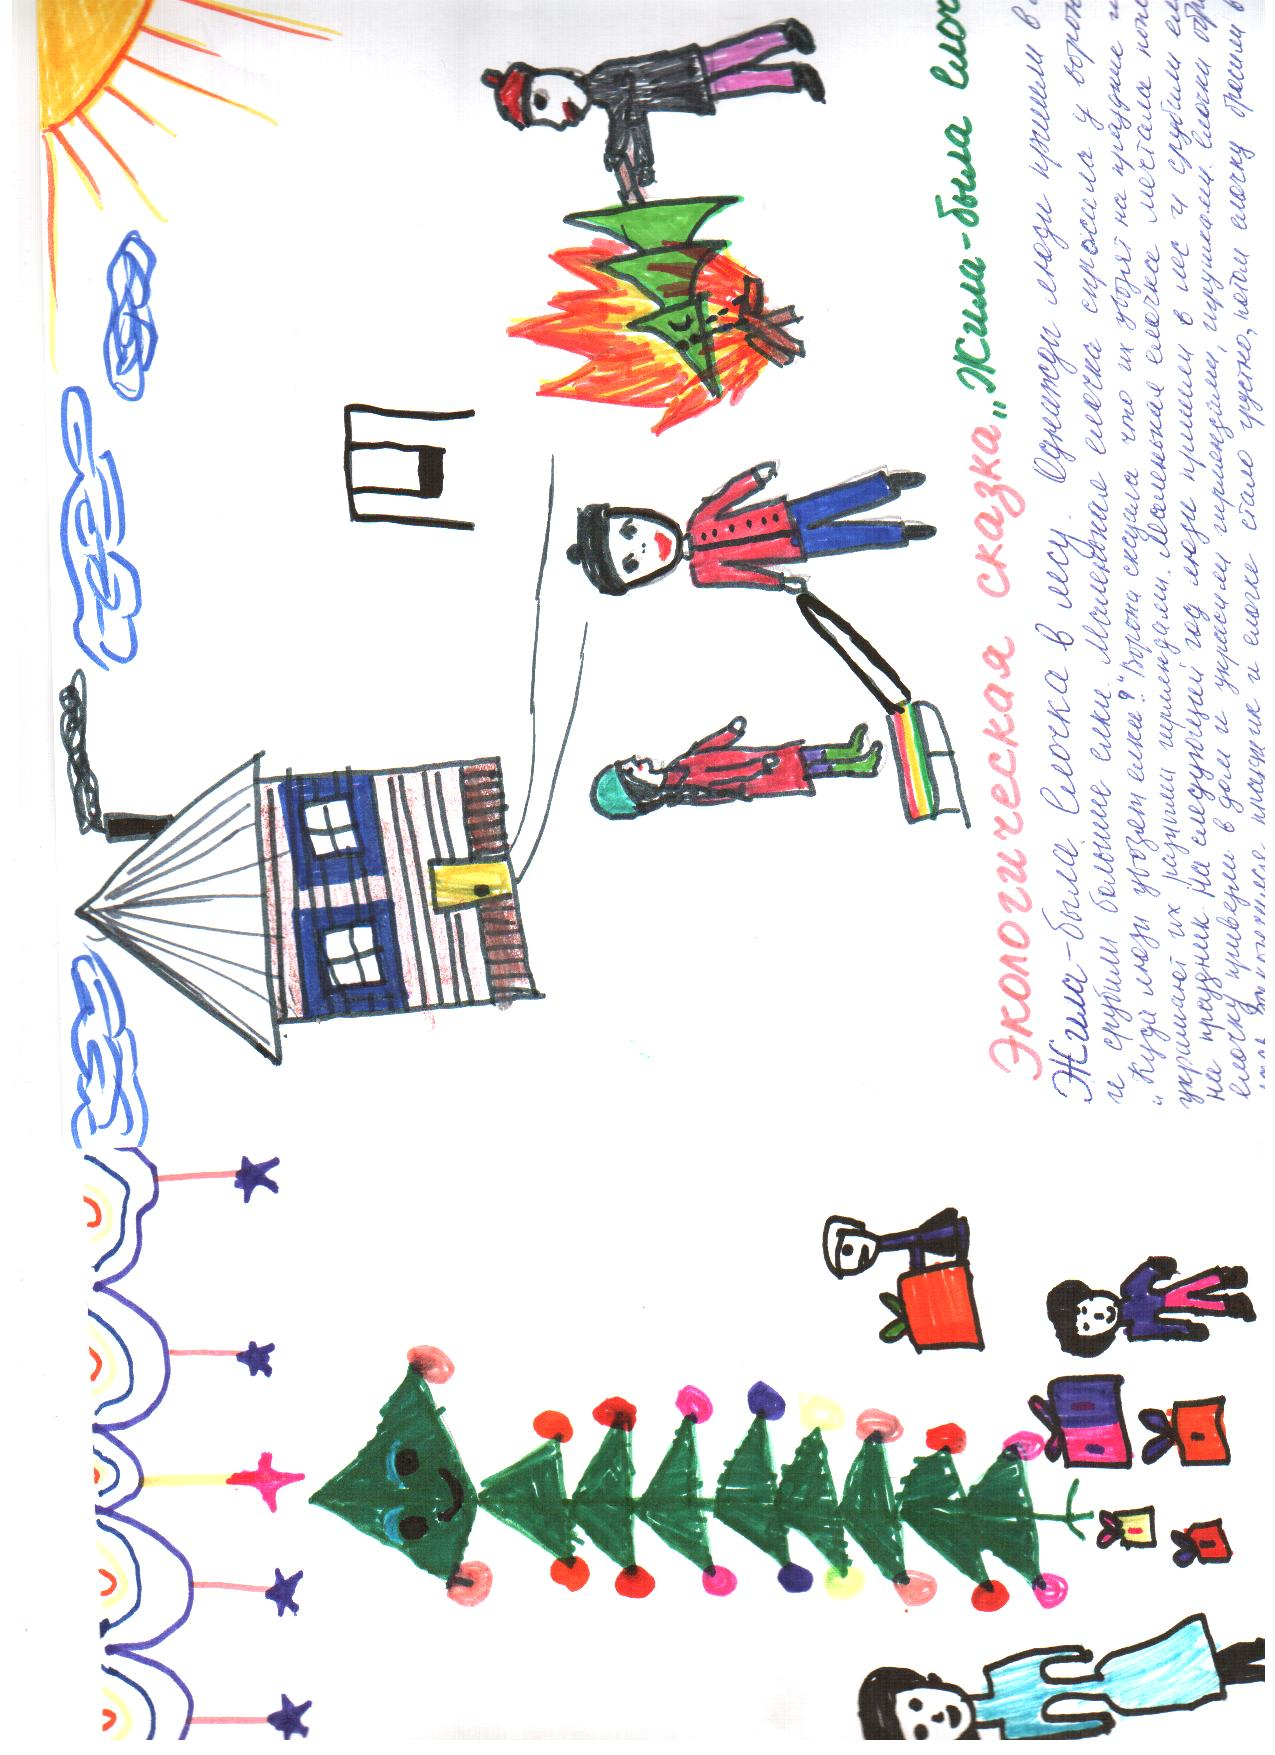 Экологическая сказка „Жила-была елоч
Жила-была елочка в лесу. Однажды люди пришли в
и срубили большие елки. Маленькая елочка спросила у ворон
„Куда люди увозят елки?" Ворона сказала что их увозят на праздник и
украшают их разными гирляндами. Маленькая елочка мечтала
на праздник. На следующий год люди пришли в лес и срубили ел
елочку привезли в дом и украсили гирляндами, игрушками. елочка обр
праздник и елочке стало грустно, потом елочку бросили в